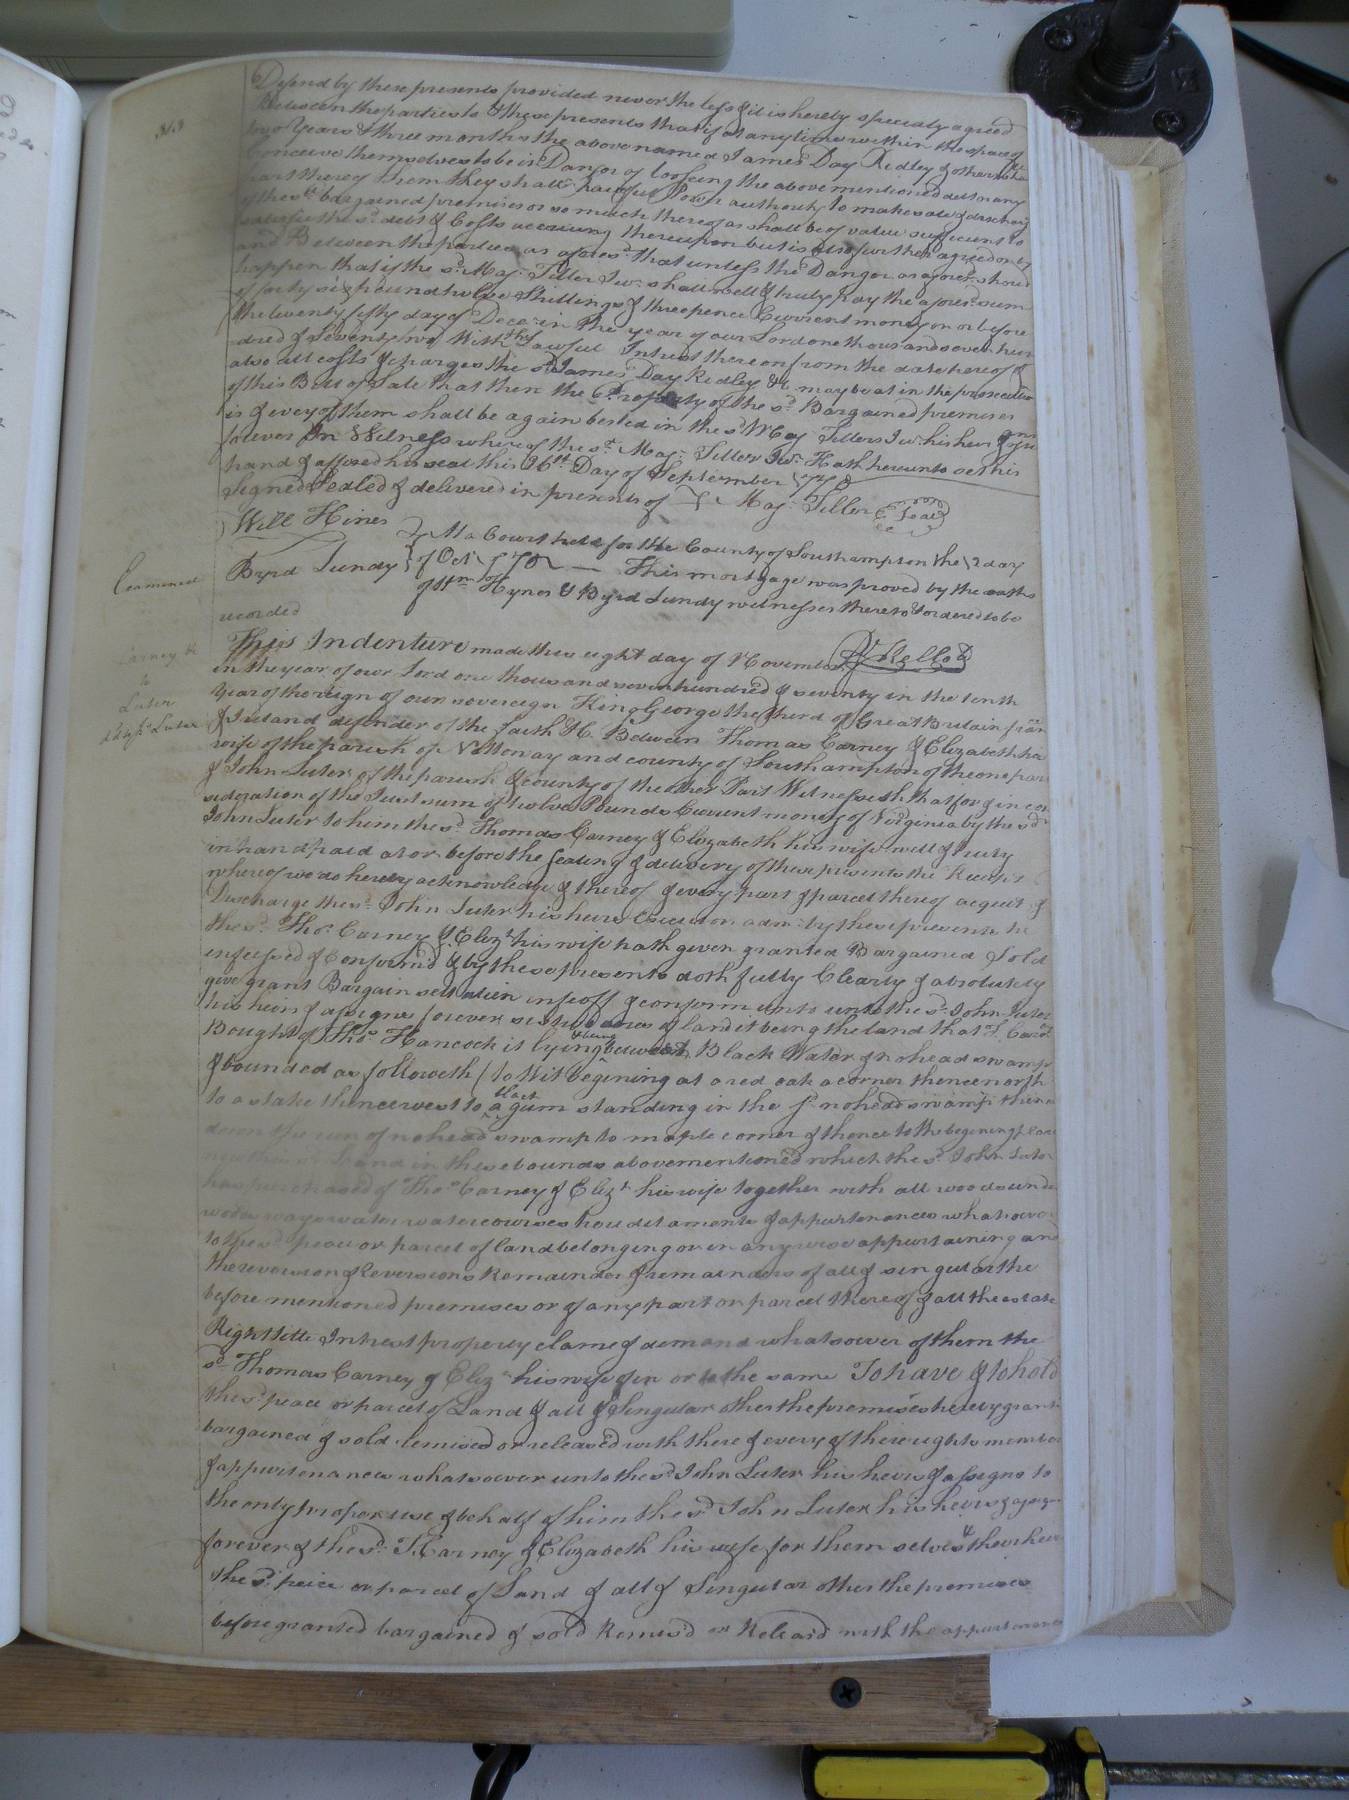 Defend by these presents provided never the less & it is hereby specialy agreed
Between the parties to these presents that if at any time within the space of
two Years & three months the above named James Day Ridley & others
conceive themselves to be in Danger of loosing the above mentioned debt or any
part thereof them they shall have full Power authority to make sale & discharg
of the sd. bargained premises or so much thereof as shall be of value sufficient to
satisfie the sd. debt & Costs accruing thereupon but is also further agreed on by
and Between the parties as afores.d that unless the Danger as afores.d should
happen that if the sd. Maj. Tiller Jur. shall well & truly pay the aforesd. sum
of forty six pound twelve Shillings & three pence Current money on or before
the twenty fifty day of Decer. in the year of our Lord one thousand seven hun
dred & seventy two With the Lawful Intrest thereon from the date hereof &
also all costs & charges the sd. James Day Ridley &c. may be at in the prosecution
of this Bill of Sale that then the Property of the sd. Bargained premises
is & every of them shall be again bested in the sd. Maj. Tillers Jur. his heirs
forever In Witness whereof the sd. Maj. Tiller Jur. Hath hereunto set his
hand & affixed his seal this 26th. Day of September 1770
Signed Sealed & delivered in presents of Maj. Tiller Seal
Will Hines
At a Court held for the County of Southampton the 12 day
Byrd Lundy of Oct. 1770 This mortgage was proved by the oaths
Examined
of Wm. Hynes & Byrd Lundy witnesses thereto & ordered to be
recorded
This Indenture made this eight day of November
Carney &c
to
Luter
in the year of our Lord one thousand seven hundred & seventy in the tenth
Year of the reign of our sovereign King George the third of Great Britain
& Ireland defender of the faith &c. Between Thomas Carney & Elizabeth his
wife of the parish of Nottoway and county of Southampton of the one part
& John Luter of the parish & county of the other Part Witnesseth that for & in con
sideration of the Just sum of twelve Pounds Current money of Virginia by the sd.
John Luter to him the sd. Thomas Carney & Elizabeth his wife well & truly
in hand paid at or before the sealing & delivery of these presents the Receipt
whereof we do hereby acknowledge & thereof & every part & parcel thereof acquit &
Discharge the sd. John Luter his heirs Executors adm. by these presents he
the sd. Thos. Carney & Elizt. his wife hath given granted Bargained Sold
infeofed & Conform'd & by these presents doth fully Clearly & absolutely
give grant Bargain sell alien infeoff & conform unto unto the sd. John Luter
his heirs & assigns forever acres of land it being the land that T. Carn.
Bought of Thos. Hancock it lying & being between Black Water & nohead swamp
& bounded as followeth (to Wit begining at a red oak a corner thence north
to a stake thence west to a black gum standing in the sd. nohead swamp thence
down the run of nohead swamp to maple corner & thence to the begining
Land in these bounds abovementioned which the sd. John Luter
has purchased of Thos. Carney & Elizt. his wife together with all woods under
woods ways water watercourses heriditaments & appurtenances whatsoever
to the sd. peace or parcel of land belonging or in any wise appurtaining and
the reversion & Reversions Remainder & remainders of all & singular the
before mentioned premises or of any part or parcel thereof & all the estate
Right title Intrest property clame & demand whatsoever of them the
sd. Thomas Carney & Eliz. his wife of in or to the same To have & to hold
the sd. peace or parcel of Land & all & Singular other the premises hereby grant
bargained & sold remised or released with there & every of there rights member
& appurtenances whatsoever unto the sd. John Luter his heirs & assigns to
the only proper use & behalf of him the sd. John Luter his heirs & assigns
forever & the sd. T. Carney & Elizabeth his wife for them selves & their heirs
the sd. peice or parcel of Land & all & Singular other the premises
before granted bargained & sold Remis'd or Releas'd with the appurtenances